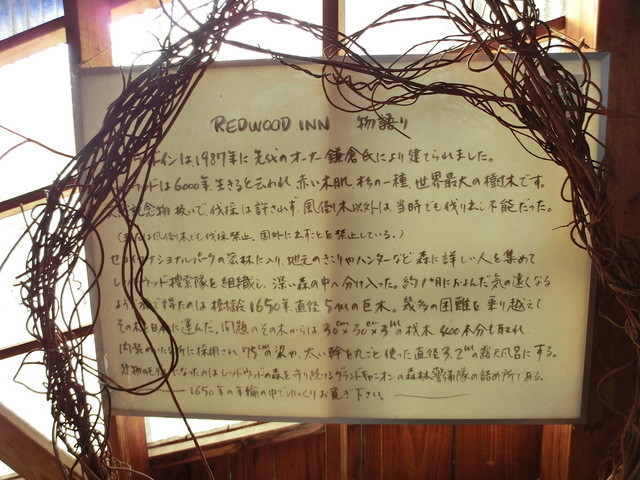 REDWOOD INN 物語り
インは1987年に先代のオーナー鎌倉氏により建てられました。
ウッドは6000年生きると云われ、赤い木肌、杉の一種、世界最大の樹木です。
念物扱いで、伐採は許されず、風倒木以外は当時でも伐り出し不能だった。
は風倒木でも伐採禁止、国外に出すことを禁止している。)
ナショナルパークの密林に入り、地元のきこりやハンターなど森に詳しい人を集めて
レッドウッド捜索隊を組織し、深い森の中へ分け入った。約1ヶ月におよんだ気の遠くなる
旅で得たのは樹齢1650年、直径5mの巨木。幾多の困難を乗り越えて
その木を日本に運んだ。問題のその木からは30cm×30cm×3mの角材400本分も取れ
内装のいたる所に採用され75cm梁や、太い幹を丸ごと使った直径3.2mの露天風呂にする。
建物のモデルになったのはレッドウッドの森を守り続けるグランドキャニオンの森林警備隊の詰め所である。
1650年の年輪の中でゆっくりお寛ぎ下さい。